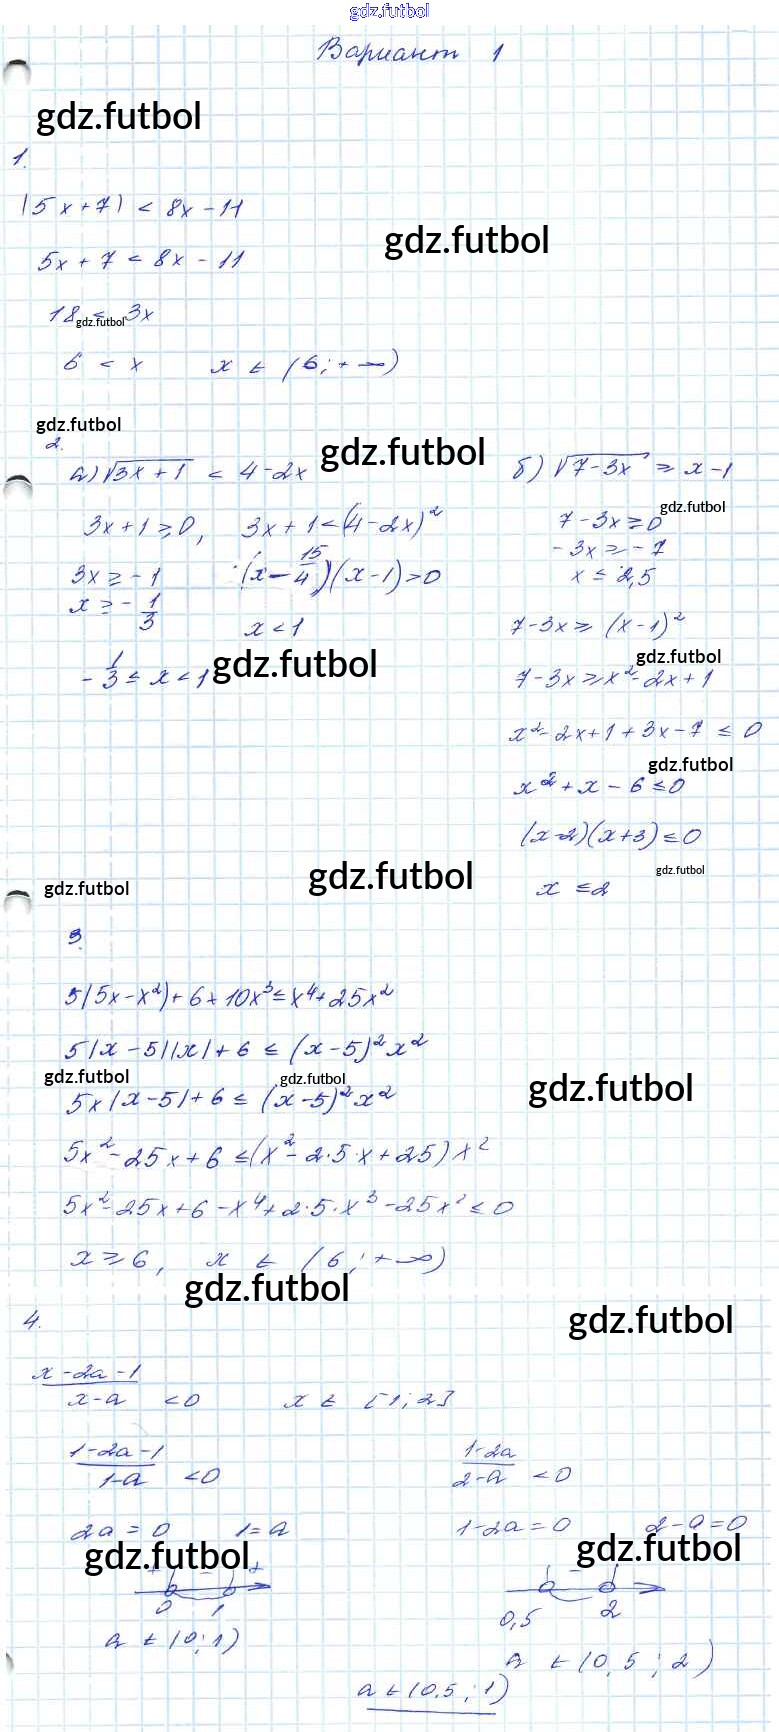 gdz.futbol
Вариант 1
gdz.futbol
1.
|5x+7| < 8x-11
gdz.futbol
5x+7 < 8x-11
18 < 3x
gdz.futbol
6 < x   x ∈ (6; +∞)
gdz.futbol
2.
а) √3x+1 < 4-2x
gdz.futbol
3x+1 ≥ 0, 3x+1 < (4-2x)²
3x ≥ -1   (x - 15/4)(x-1) > 0
x ≥ -1/3   x < 1
-1/3 ≤ x < 1
gdz.futbol
б) √7-3x ≥ x-1
gdz.futbol
7-3x ≥ 0
-3x ≥ -7
x ≤ 2,5
7-3x ≥ (x-1)²
gdz.futbol
7-3x ≥ x²-2x+1
x²-2x+1+3x-7 ≤ 0
gdz.futbol
x²+x-6 ≤ 0
(x-2)(x+3) ≤ 0
gdz.futbol
x ≤ 2
gdz.futbol
gdz.futbol
3.
5|5x-x²|+6+10x³ ≤ x⁴+25x²
5|x-5||x|+6 ≤ (x-5)²x²
gdz.futbol
gdz.futbol
gdz.futbol
5x|x-5|+6 ≤ (x-5)²x²
5x²-25x+6 ≤ (x²-2·5·x+25)x²
5x²-25x+6-x⁴+2·5·x³-25x² ≤ 0
x ≥ 6, x ∈ (6; +∞)
gdz.futbol
gdz.futbol
4.
x-2a-1
x-a < 0   x ∈ [1; 2]
1-2a-1
1-a < 0
2a = 0   1 = a
gdz.futbol
+ - +
0 1
a ∈ (0; 1)
1-2a
2-a < 0
1-2a = 0   2-a = 0
gdz.futbol
-
0,5 2
a ∈ (0,5; 2)
a ∈ (0,5; 1)